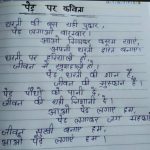 पेड़ पर कविता
धरती की बस यही पुकार,
पेड़ लगाओ बारम्बार।
आओ मिलकर कसम खाएं,
अपनी धरती हरित बनाए।
धरती पर हरियाली हो,
जीवन में खुशहाली हो।
पेड़ धरती की शान है,
जीवन की मुस्कान है।
पेड़ पौधों को पानी दे,
जीवन की यही निशानी दे।
आओ पेड़ लगाए हम,
पेड़ लगाकर जग महकाकर
जीवन सुखी बनाए हम,
आओ पेड़ लगाए हम।